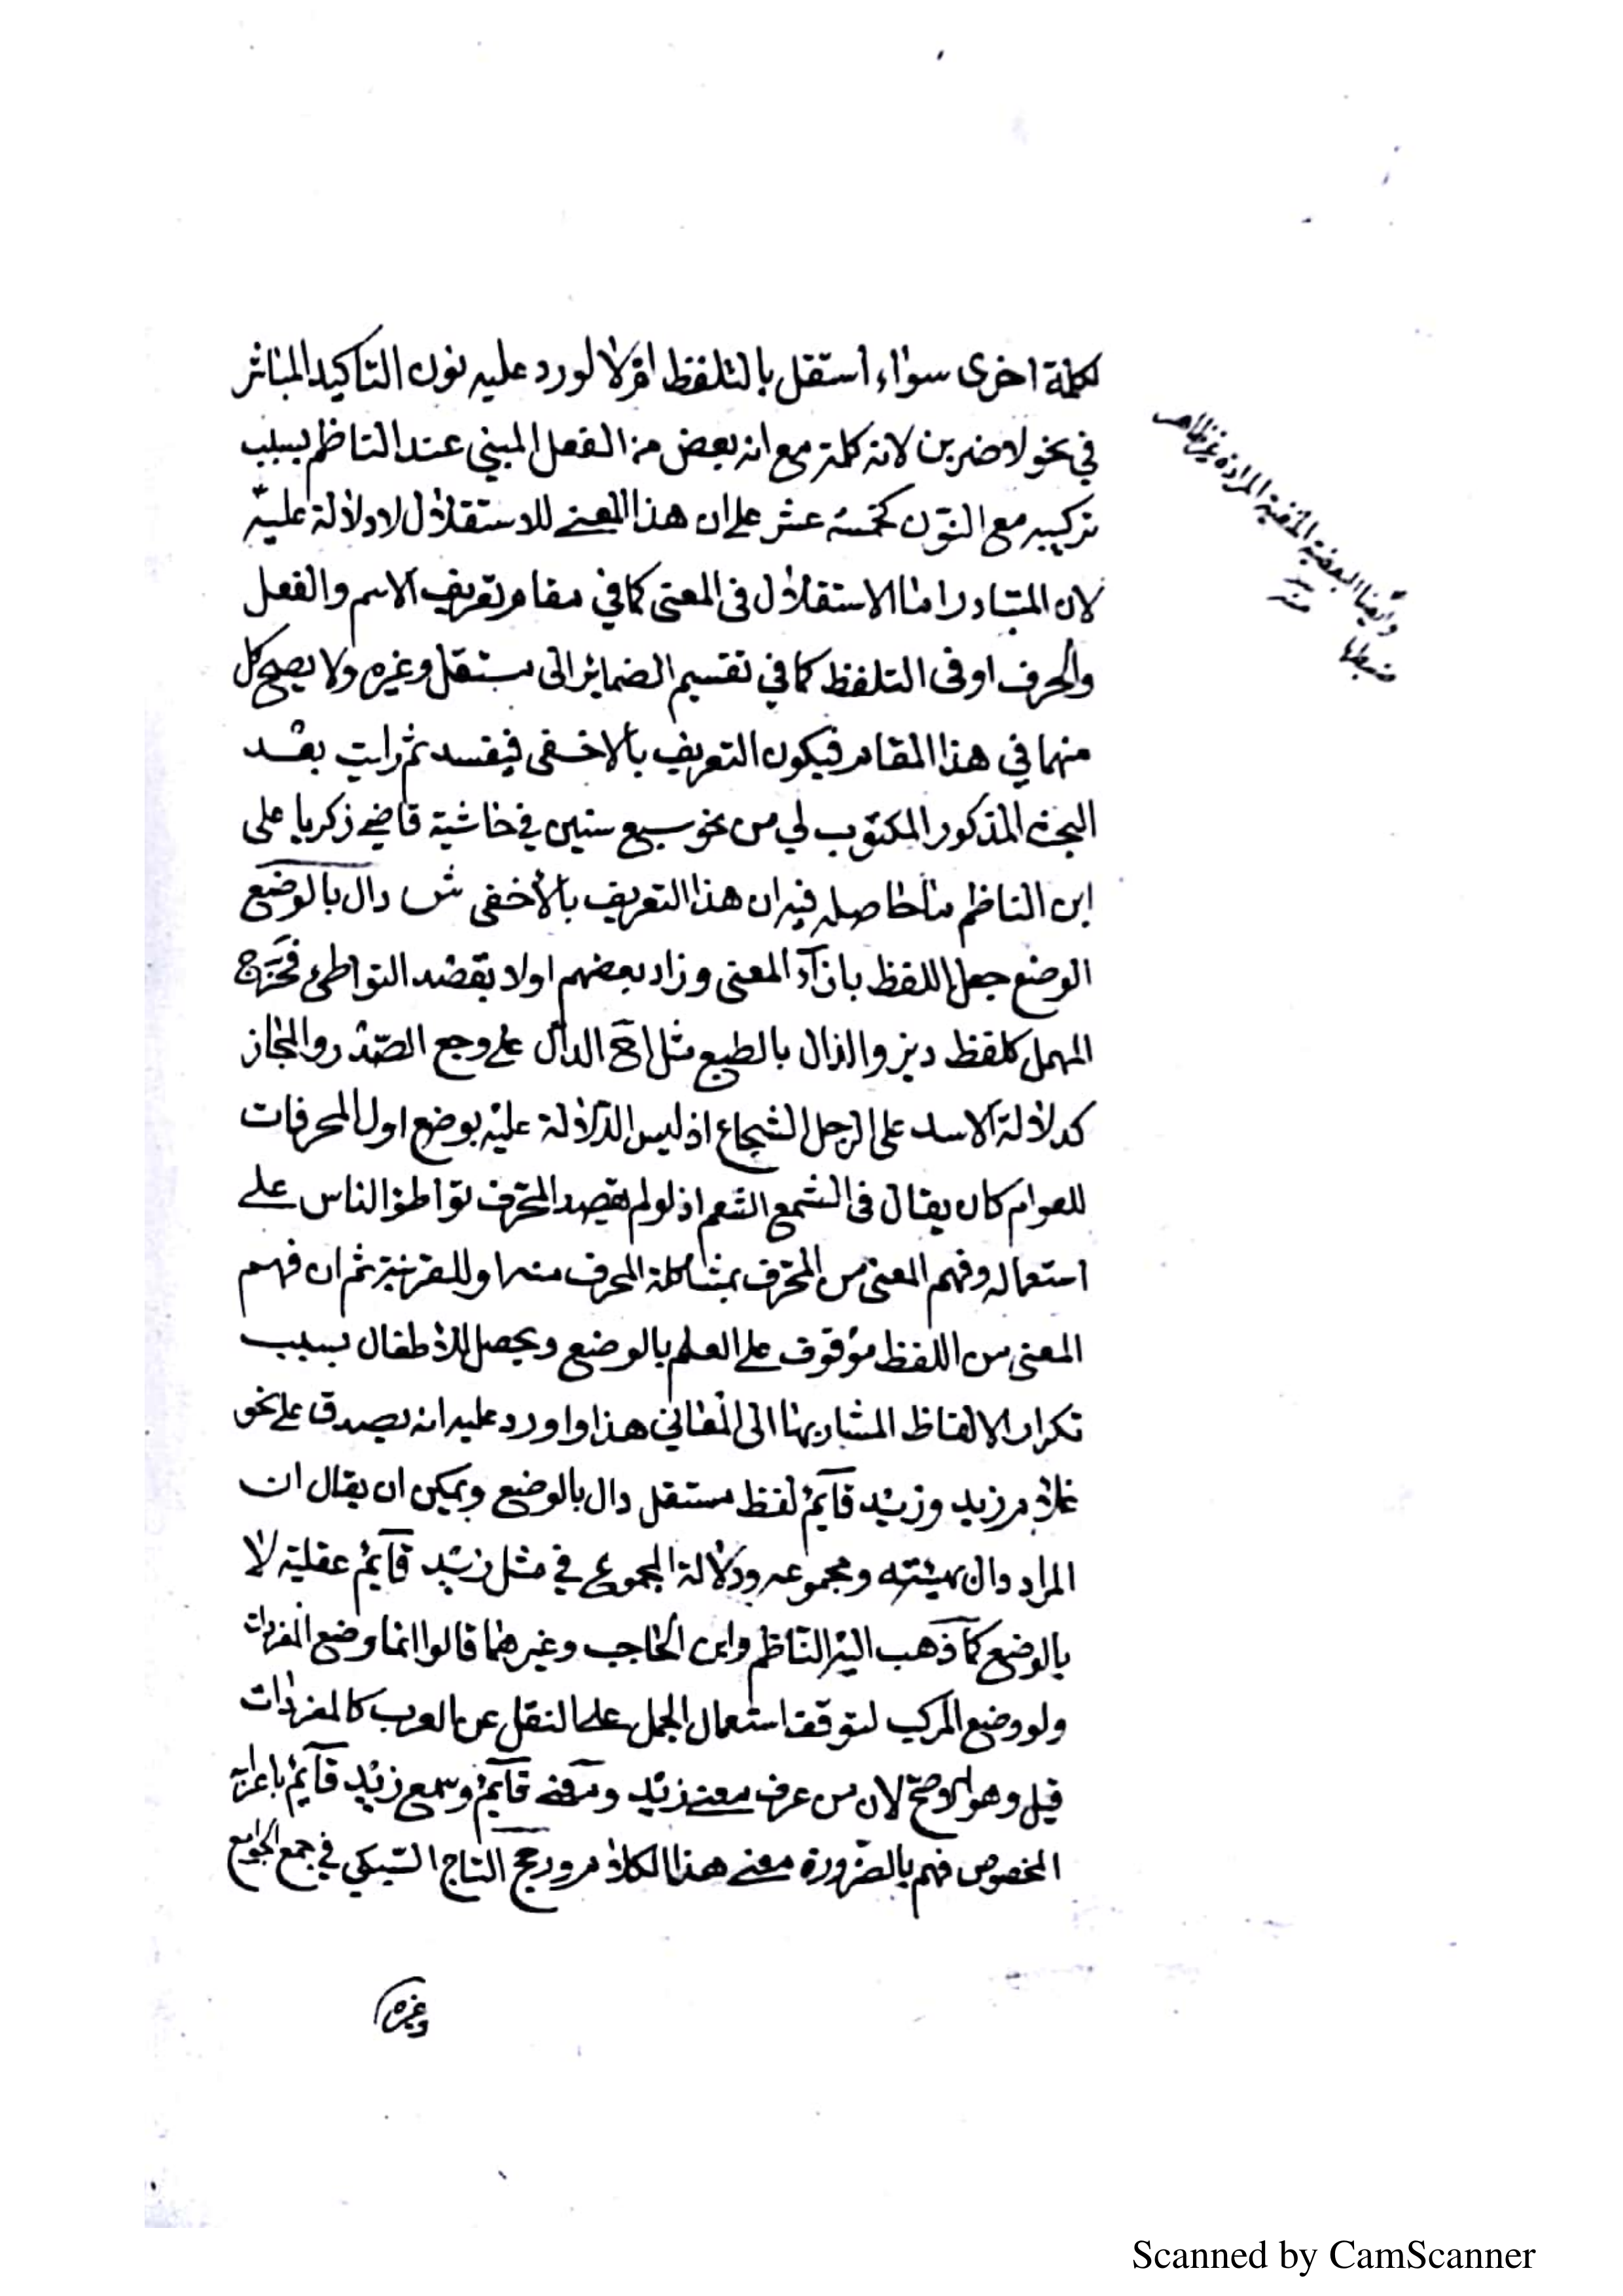 لكلمة اخرى سواء استقل بالتلفظ ام لا لورد عليه نون التاكيد المباشر
في نحو لا ضربن لانه كلمة مع انه بعض من الفعل المبني عند الناظم بسبب
تركيبه مع النون كخمسة عشر على ان هذا المعنى للاستقلال لا دلالة عليه
لان المتبادر اما الاستقلال فى المعنى كما في مقام تعريف الاسم والفعل
والحرف او فى التلفظ كما في تقسيم الضمائر الى مستقل وغيره ولا يصح كل
منهما في هذا المقام فيكون التعريف بالاخفى فيفسد ثم رايت بعد
البحث المذكور المكتوب لي من نحو سبع سنين في حاشية قاضي زكريا على
ابن الناظم ما حاصله فيه ان هذا التعريف بالأخفى ش دال بالوضع
الوضع جعل اللفظ بازآء المعنى وزاد بعضهم اولا بقصد التواطئ فخرج
المهمل كلفظ ديز والدال بالطبع مثل اح الدال على وجع الصدر والمجاز
كدلالة الاسد على الرجل الشجاع اذ ليس الدلالة عليه بوضع اول المحرفات
للعوام كان يقال فى الشمع الشعم اذ لو لم يقصد المحرف تواطؤ الناس على
استعماله وفهم المعنى من المحرف بمشاكلة المحرف منه او للقرينة ثم ان فهم
المعنى من اللفظ موقوف على العلم بالوضع ويحصل للاطفال بسبب
تكرار الالفاظ المشار بها الى المعاني هذا واورد عليه انه يصدق على نحو
غلام زيد وزيد قآيم لفظ مستقل دال بالوضع ويمكن ان يقال ان
المراد دال بهيئته ومجموعه ودلالة المجموع في مثل زيد قآيم عقلية لا
بالوضع كما ذهب اليه الناظم وابن الحاجب وغيرهما قالوا انما وضع المفردات
ولو وضع المركب لتوقف استعمال الجمل على النقل عن العرب كالمفردات
قيل وهو الاصح لان من عرف معنى زيد ومعنى قآيم وسمع زيد قآيم باعرابه
المخصوص فهم بالضرورة معنى هذا الكلام ورجح التاج السبكي في جمع الجوامع
وغيره
وايضا البعضية المنفية المرادة غير ظاهر
ضبطها
منه
Scanned by CamScanner